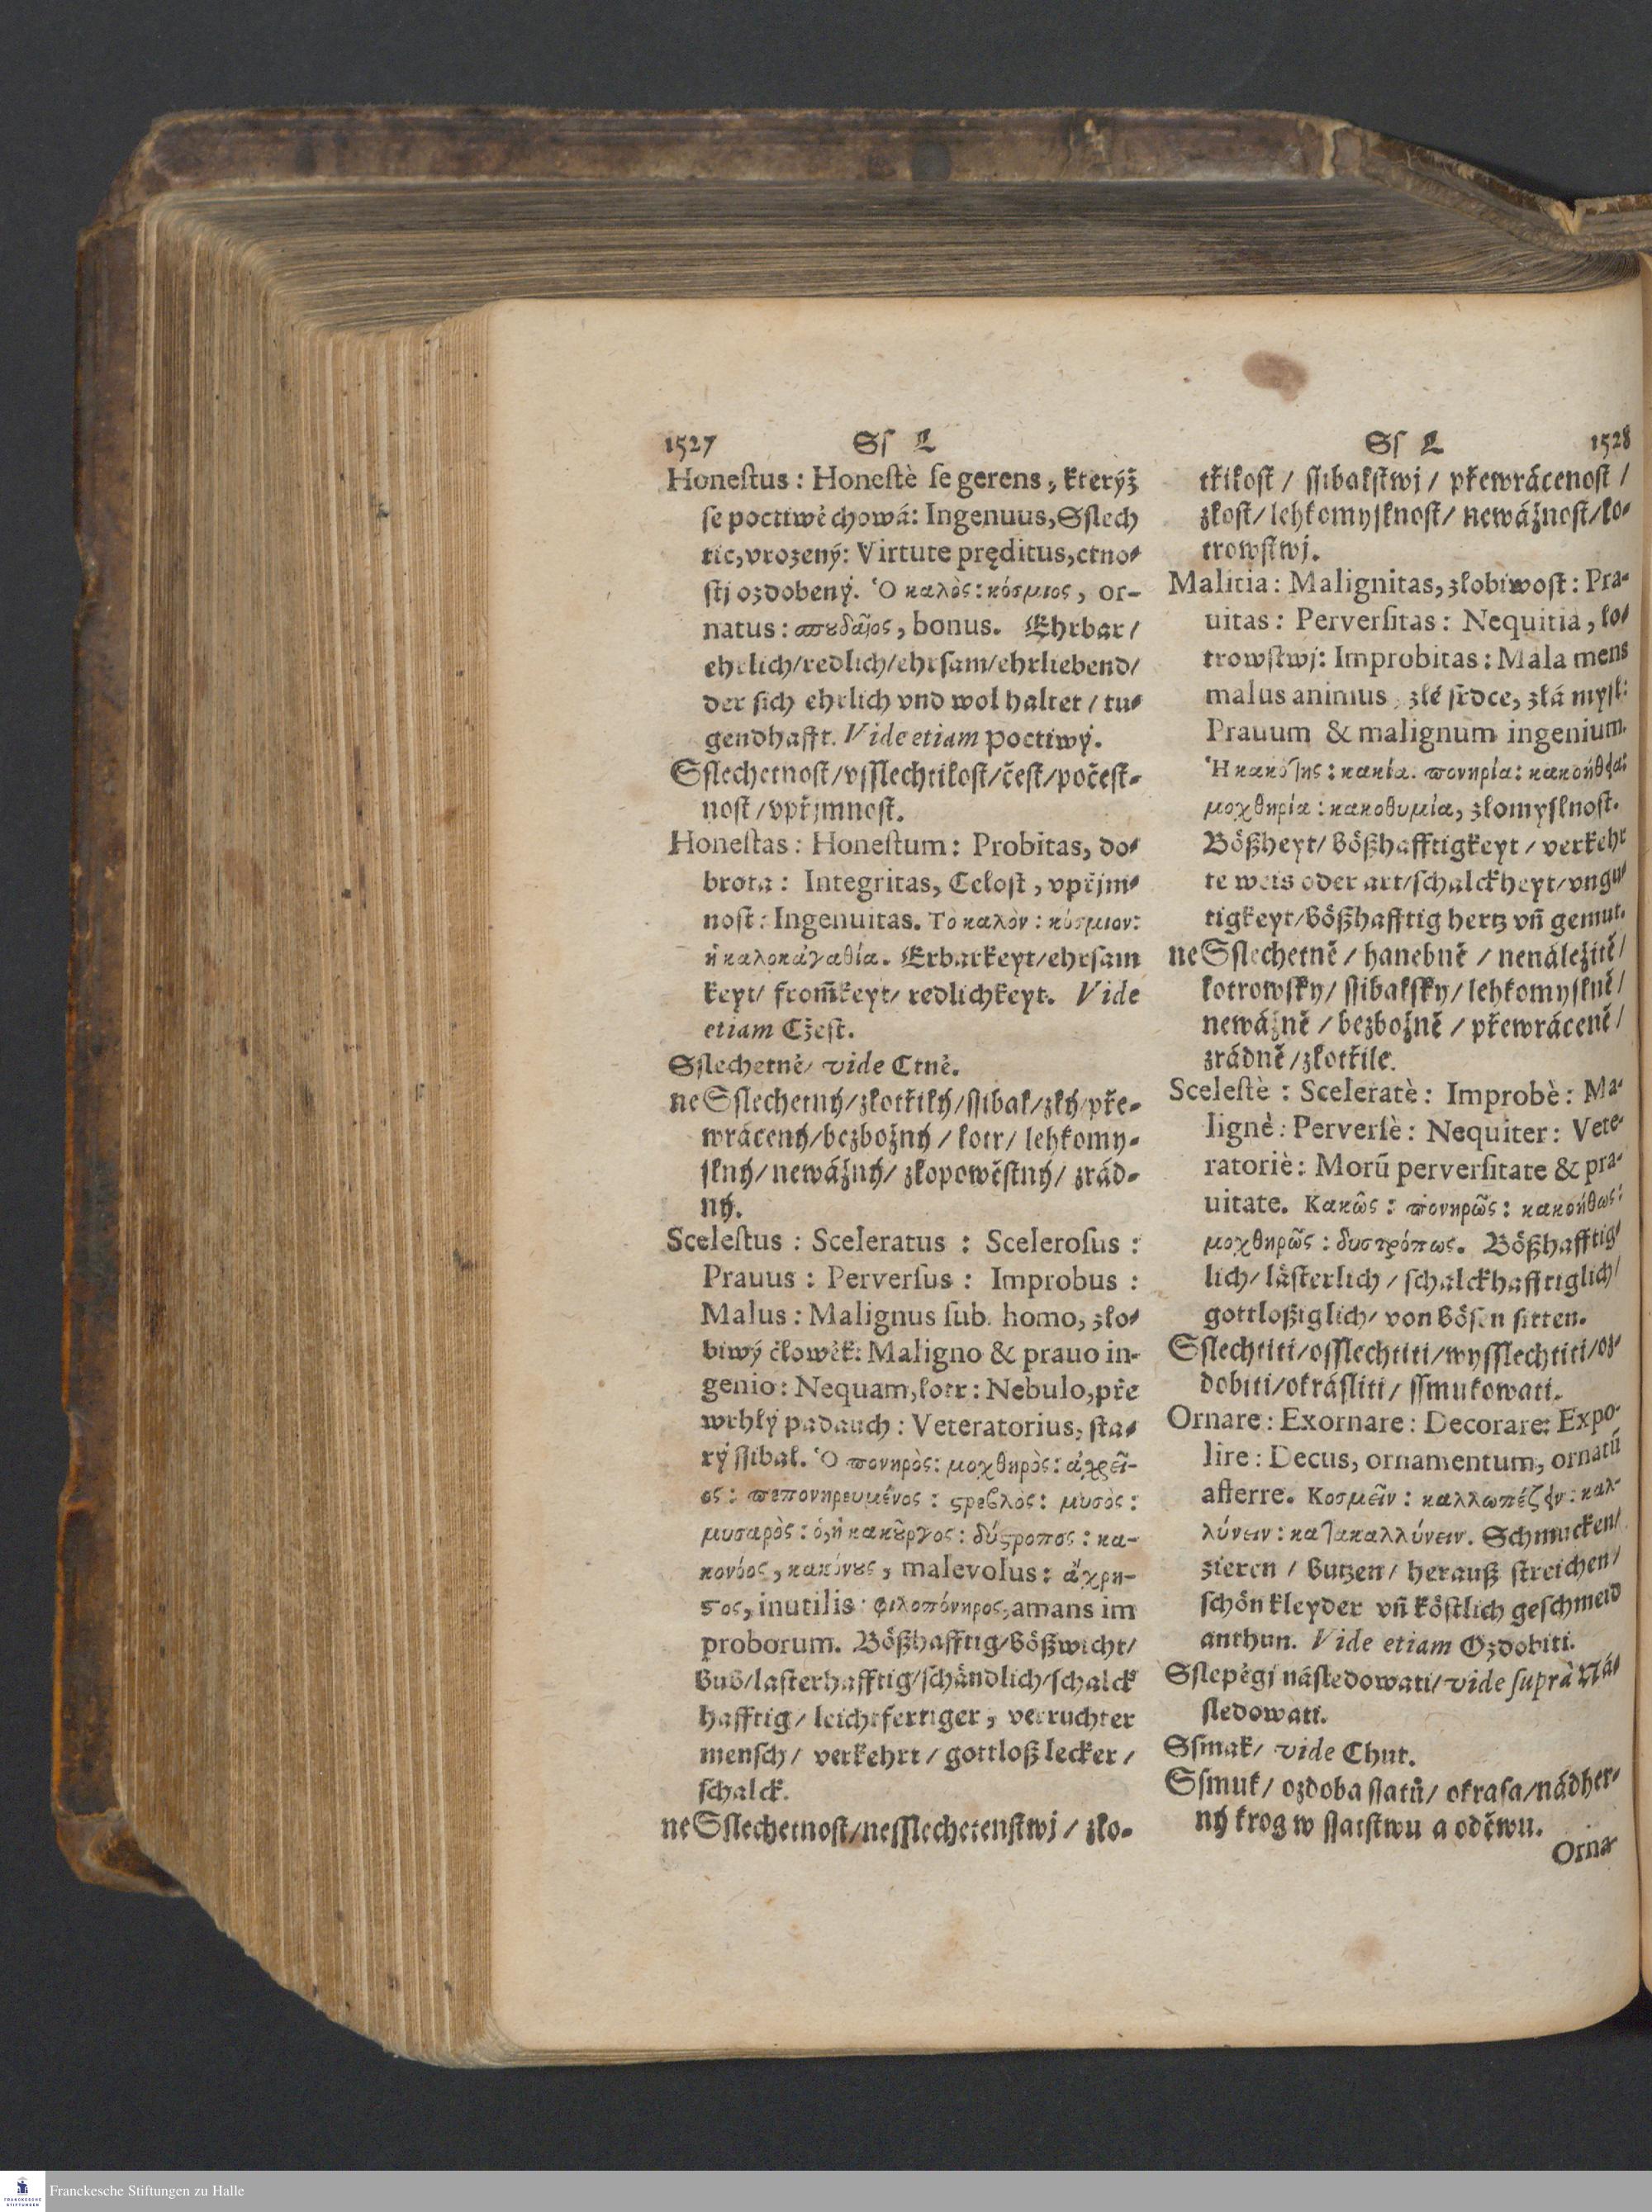 1527 Sſ L
Honeſtus: Honeſtè ſe gerens, kterýž
ſe poctiwě chowá: Ingenuus, Sſlech
tic, vrozený: Virtute pręditus, ctno-
ſtj ozdobený. Ὁ καλὸς: κόσμιος, or-
natus: σπουδαῖος, bonus. Ehrbar/
ehrlich/redlich/ehrſam/ehrliebend/
der ſich ehrlich vnd wol haltet / tu-
gendhafft. Vide etiam Poctiwý.
Sſlechetnoſt/vſſlechtiloſt/čeſt/počeſt-
noſt/vpřjmnoſt.
Honeſtas: Honeſtum: Probitas, do-
brota: Integritas, Celoſt, vpřjm-
noſt: Ingenuitas. Τὸ καλὸν: κόσμιον:
ἡ καλοκἀγαθία. Erbarkeyt/ehrſam
keyt/ from̃keyt/ redlichkeyt. Vide
etiam Cžeſt.
Sſlechetně/ vide Ctně.
ne Sſlechetný/zlotřilý/ſſibal/zlý/pře-
wrácený/bezbožný / lotr/ lehkomy-
ſlný/ newážný/ zlopowěſtný/ zrád-
ný.
Sceleſtus : Sceleratus : Sceleroſus :
Prauus : Perverſus : Improbus :
Malus : Malignus ſub. homo, zlo-
biwý člowěk: Maligno & prauo in-
genio: Nequam, lotr: Nebulo, pře
wrhlý padauch: Veteratorius, ſta-
rý ſſibal. Ὁ πονηρὸς: μοχθηρὸς: ἀχρεῖ-
ος: πεπονηρευμένος : στρεβλὸς: μυσὸς:
μυσαρὸς: ὁ, ἡ κακοῦργος: δύστροπος: κα-
κονόος, κακόνους, malevolus: ἄχρη-
στος, inutilis: φιλοπόνηρος, amans im
proborum. Bößhafftig/bößwicht/
bub/laſterhafftig/ſchändlich/ſchalck
hafftig/ leichtfertiger, verruchter
menſch/ verkehrt / gottloß lecker /
ſchalck.
ne Sſlechetnoſt/neſſlechetenſtwj / zlo-
Sſ L 1528
třiloſt / ſſibalſtwj / přewrácenoſt /
zloſt/ lehkomyſlnoſt/ newážnoſt/lo-
trowſtwj.
Malitia: Malignitas, zlobiwoſt: Pra-
uitas: Perverſitas: Nequitia, lo-
trowſtwj: Improbitas: Mala mens
malus animus, zlé ſrdce, zlá myſl:
Prauum & malignum ingenium.
Ἡ κακότης: κακία. πονηρία: κακοήθεια:
μοχθηρία: κακοθυμία, zlomyſlnoſt.
Bößheyt/ bößhafftigkeyt / verkehr
te weis oder art/ſchalckheyt/vngü-
tigkeyt/bößhafftig hertz vñ gemut.
ne Sſlechetně / hanebně / nenáležitě /
lotrowſky/ ſſibalſky/ lehkomyſlně /
newážně / bezbožně / přewráceně /
zrádně /zlotřile.
Sceleſtè : Sceleratè: Improbè: Ma-
lignè: Perverſè: Nequiter: Vete-
ratoriè: Morũ perverſitate & pra-
uitate. Κακῶς: πονηρῶς: κακοήθως:
μοχθηρῶς: δυστρόπως. Bößhafftig-
lich/ läſterlich / ſchalckhafftiglich/
gottloßiglich/ von böſen ſitten.
Sſlechtiti/oſſlechtiti/wyſſlechtiti/oz-
dobiti/okráſliti/ ſſmukowati.
Ornare: Exornare: Decorare: Expo-
lire: Decus, ornamentum, ornatũ
afferre. Κοσμεῖν: καλλωπίζειν: καλ-
λύνειν: κατακαλλύνειν. Schmucken/
zieren / butzen/ herauß ſtreichen/
ſchön kleyder vñ köſtlich geſchmeid
anthun. Vide etiam Ozdobiti.
Sſlepěgj náſledowati/ vide ſuprà Ná-
ſledowati.
Sſmak/ vide Chut.
Sſmuk/ ozdoba ſſatů/ okraſa/nádher-
ný krog w ſſatſtwu a oděwu.
Orna-
Franckesche Stiftungen zu Halle
FRANCKESCHE
STIFTUNGEN